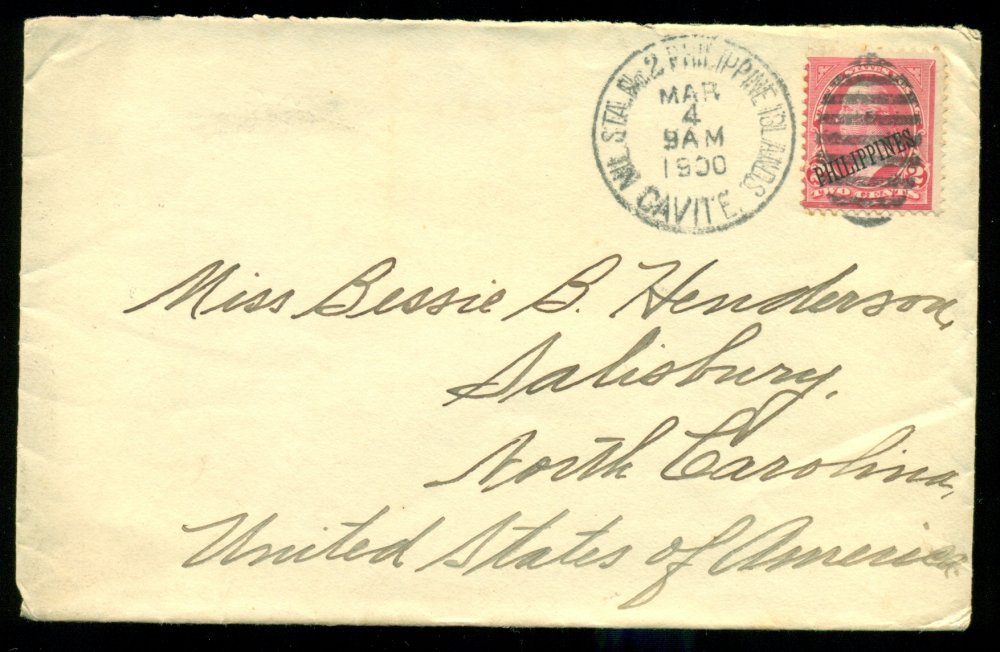 MIL. STA. No. 2 PHILIPPINE ISLANDS
MAR
4
9AM
1900
CAVITE.
PHILIPPINES
TWO CENTS
Miss Bessie B. Henderson,
Salisbury,
North Carolina,
United States of America.